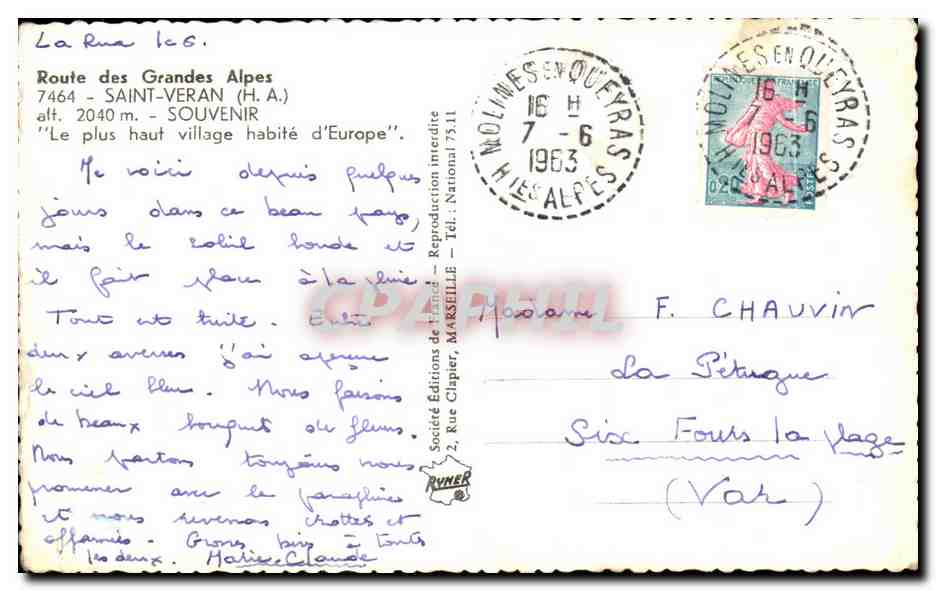 La Rua le 6.
Route des Grandes Alpes
7464 - SAINT-VERAN (H. A.)
alt. 2040 m. - SOUVENIR
"Le plus haut village habité d'Europe".
Me voici depuis quelques
jours dans ce beau pays,
mais le soleil boude et
il fait place à la pluie.
Tout est triste. Entre
deux averses j'ai aperçu
le ciel bleu. Nous faisons
de beaux bouquets de fleurs.
Nous partons toujours nous
promener avec le parapluie
et nous revenons crottés et
affamés. Grosses bises à toutes
les deux. Marie Claude
Société Éditions de France - Reproduction interdite
2, Rue Clapier, MARSEILLE - Tél. : National 75.11
RYNER
MOLINES EN QUEYRAS
16 H
7 - 6
1963
HTES ALPES
MOLINES EN QUEYRAS
16 H
7 - 6
1963
HTES ALPES
0,20
POSTES
CPAPHIL
Madame F. CHAUVIN
La Pétugue
Six Fours la plage
(Var)